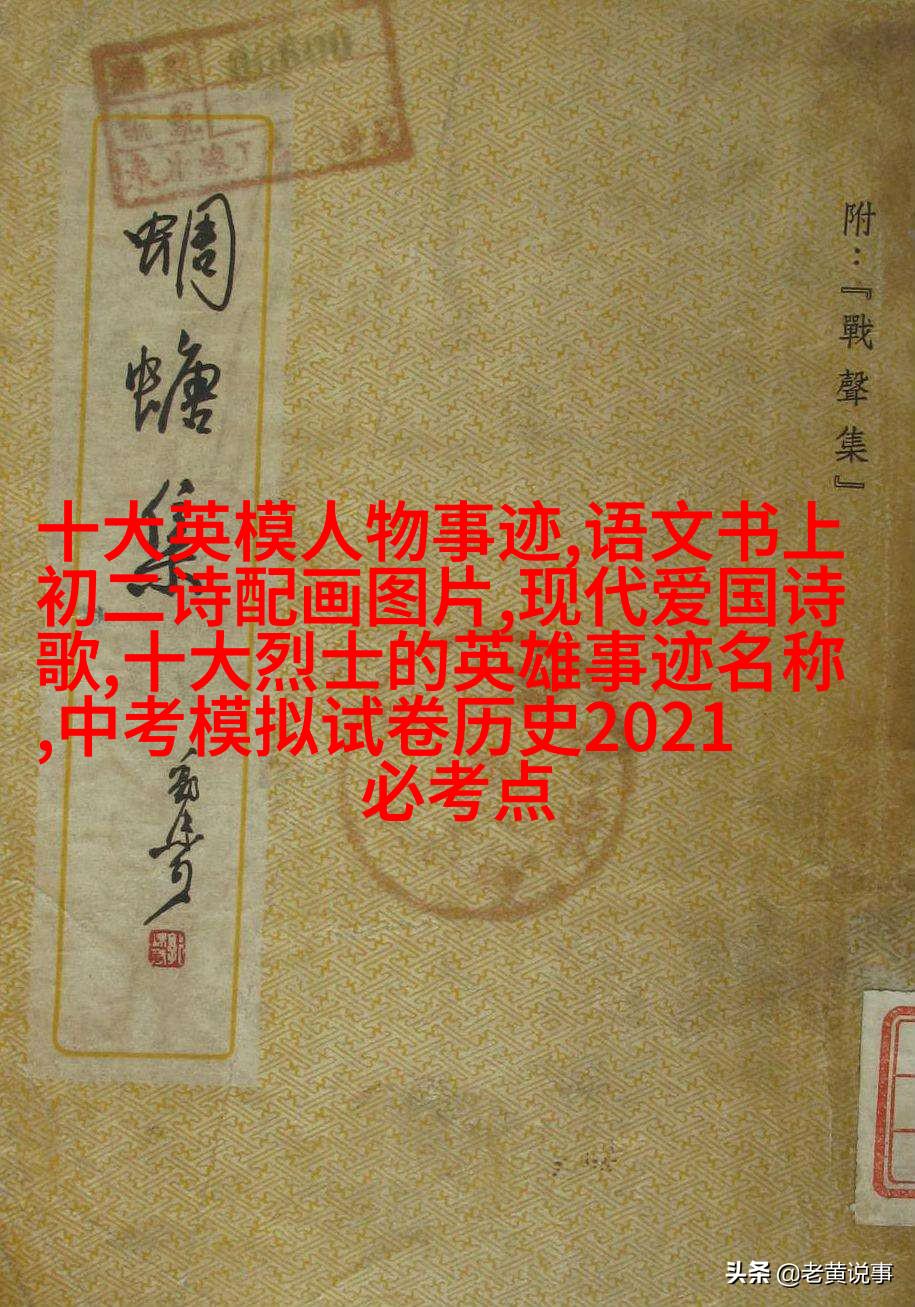 蜩螗集
附：『戰聲集』
十大英模人物事迹,语文书上
初二诗配画图片,现代爱国诗
歌,十大烈士的英雄事迹名称
,中考模拟试卷历史2021
必考点
头条 @老黄说事